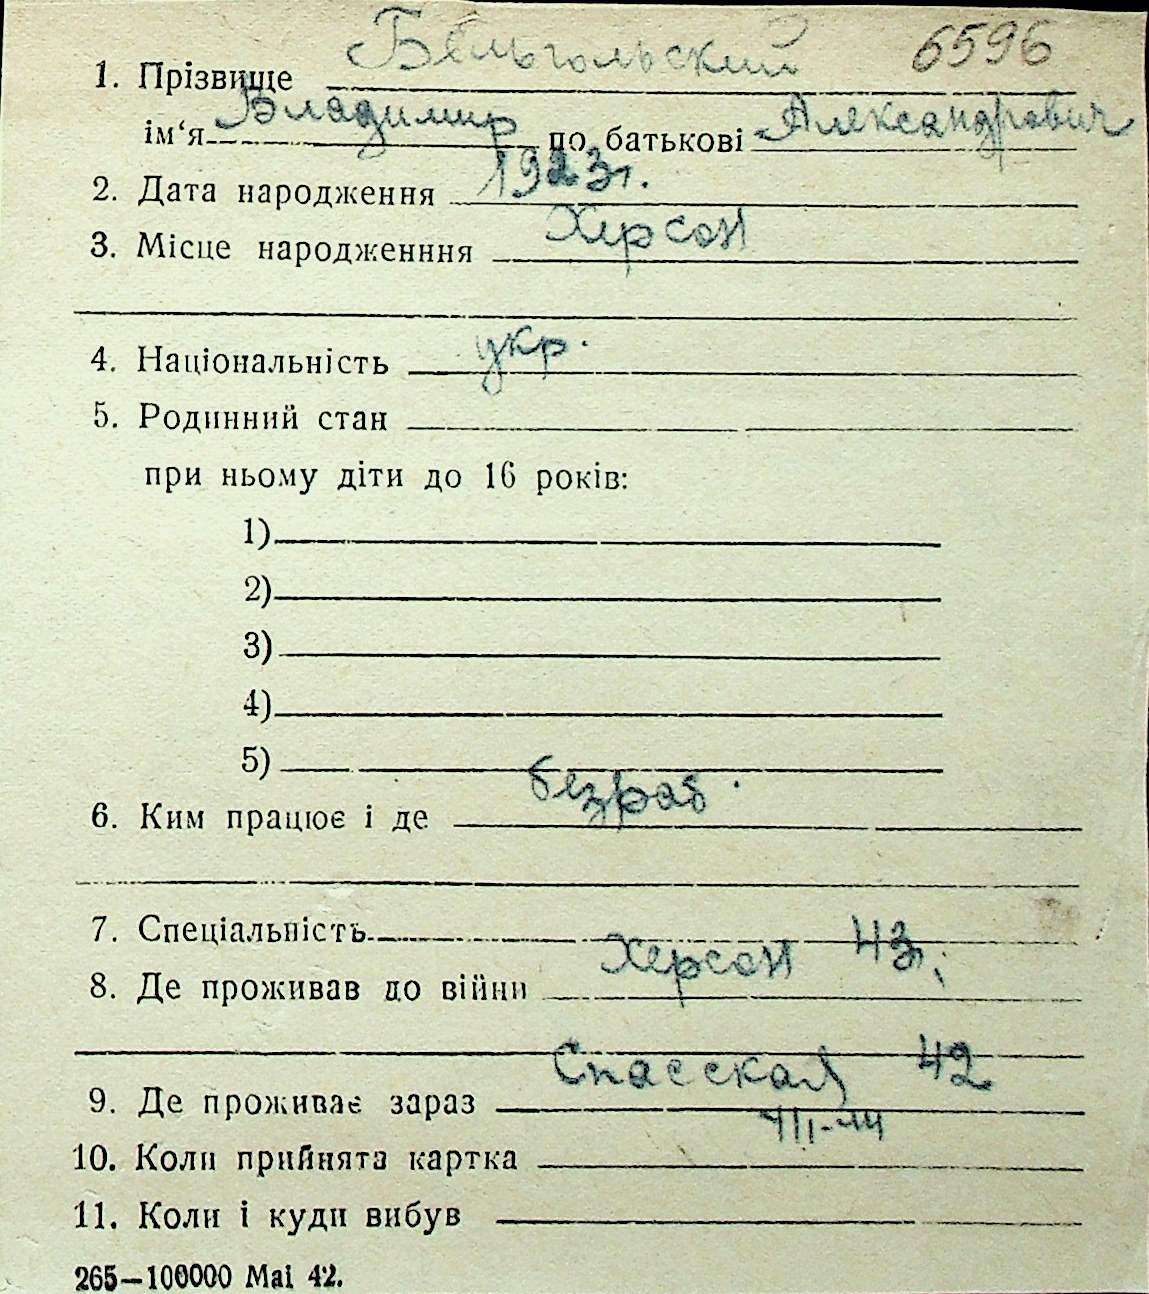 6596
1. Прізвище Бельгольский
ім‘я Владимир по батькові Александрович
2. Дата народження 1923 г.
3. Місце народженння Херсон
4. Національність укр.
5. Родинний стан
при ньому діти до 16 років:
1)
2)
3)
4)
5)
6. Ким працює і де безраб.
7. Спеціальність
8. Де проживав до війни Херсон
9. Де проживає зараз Спасская 42
10. Коли прийнята картка
11. Коли і куди вибув
265—100000 Mai 42.